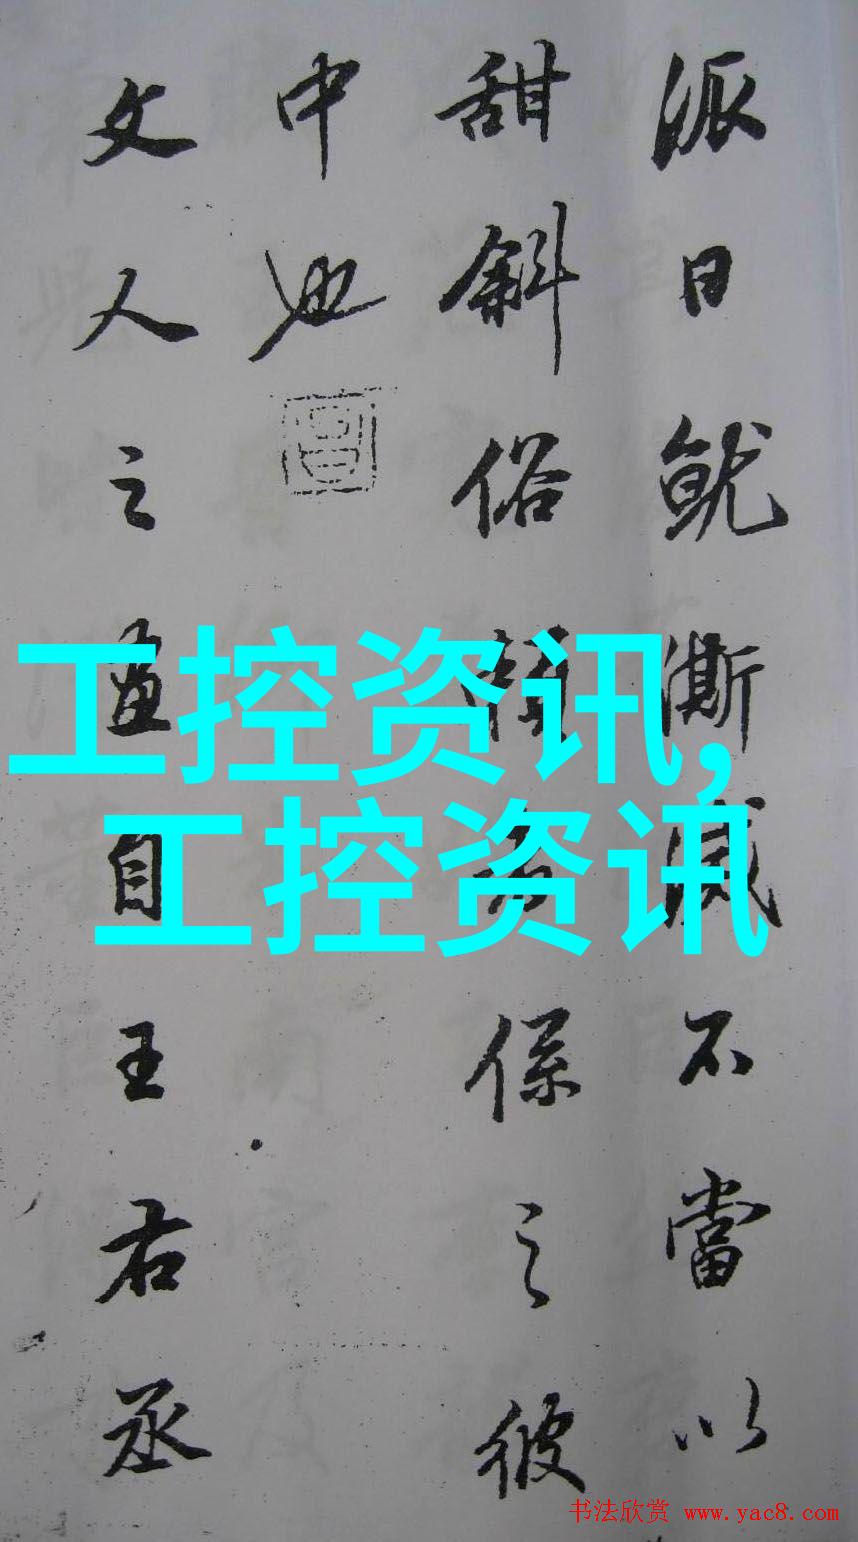 派日就澌滅不當以
甜斜俗係之彼
中也
文人之畫自王右丞
工控资讯,
工控资讯
书法欣赏 www.yac8.com